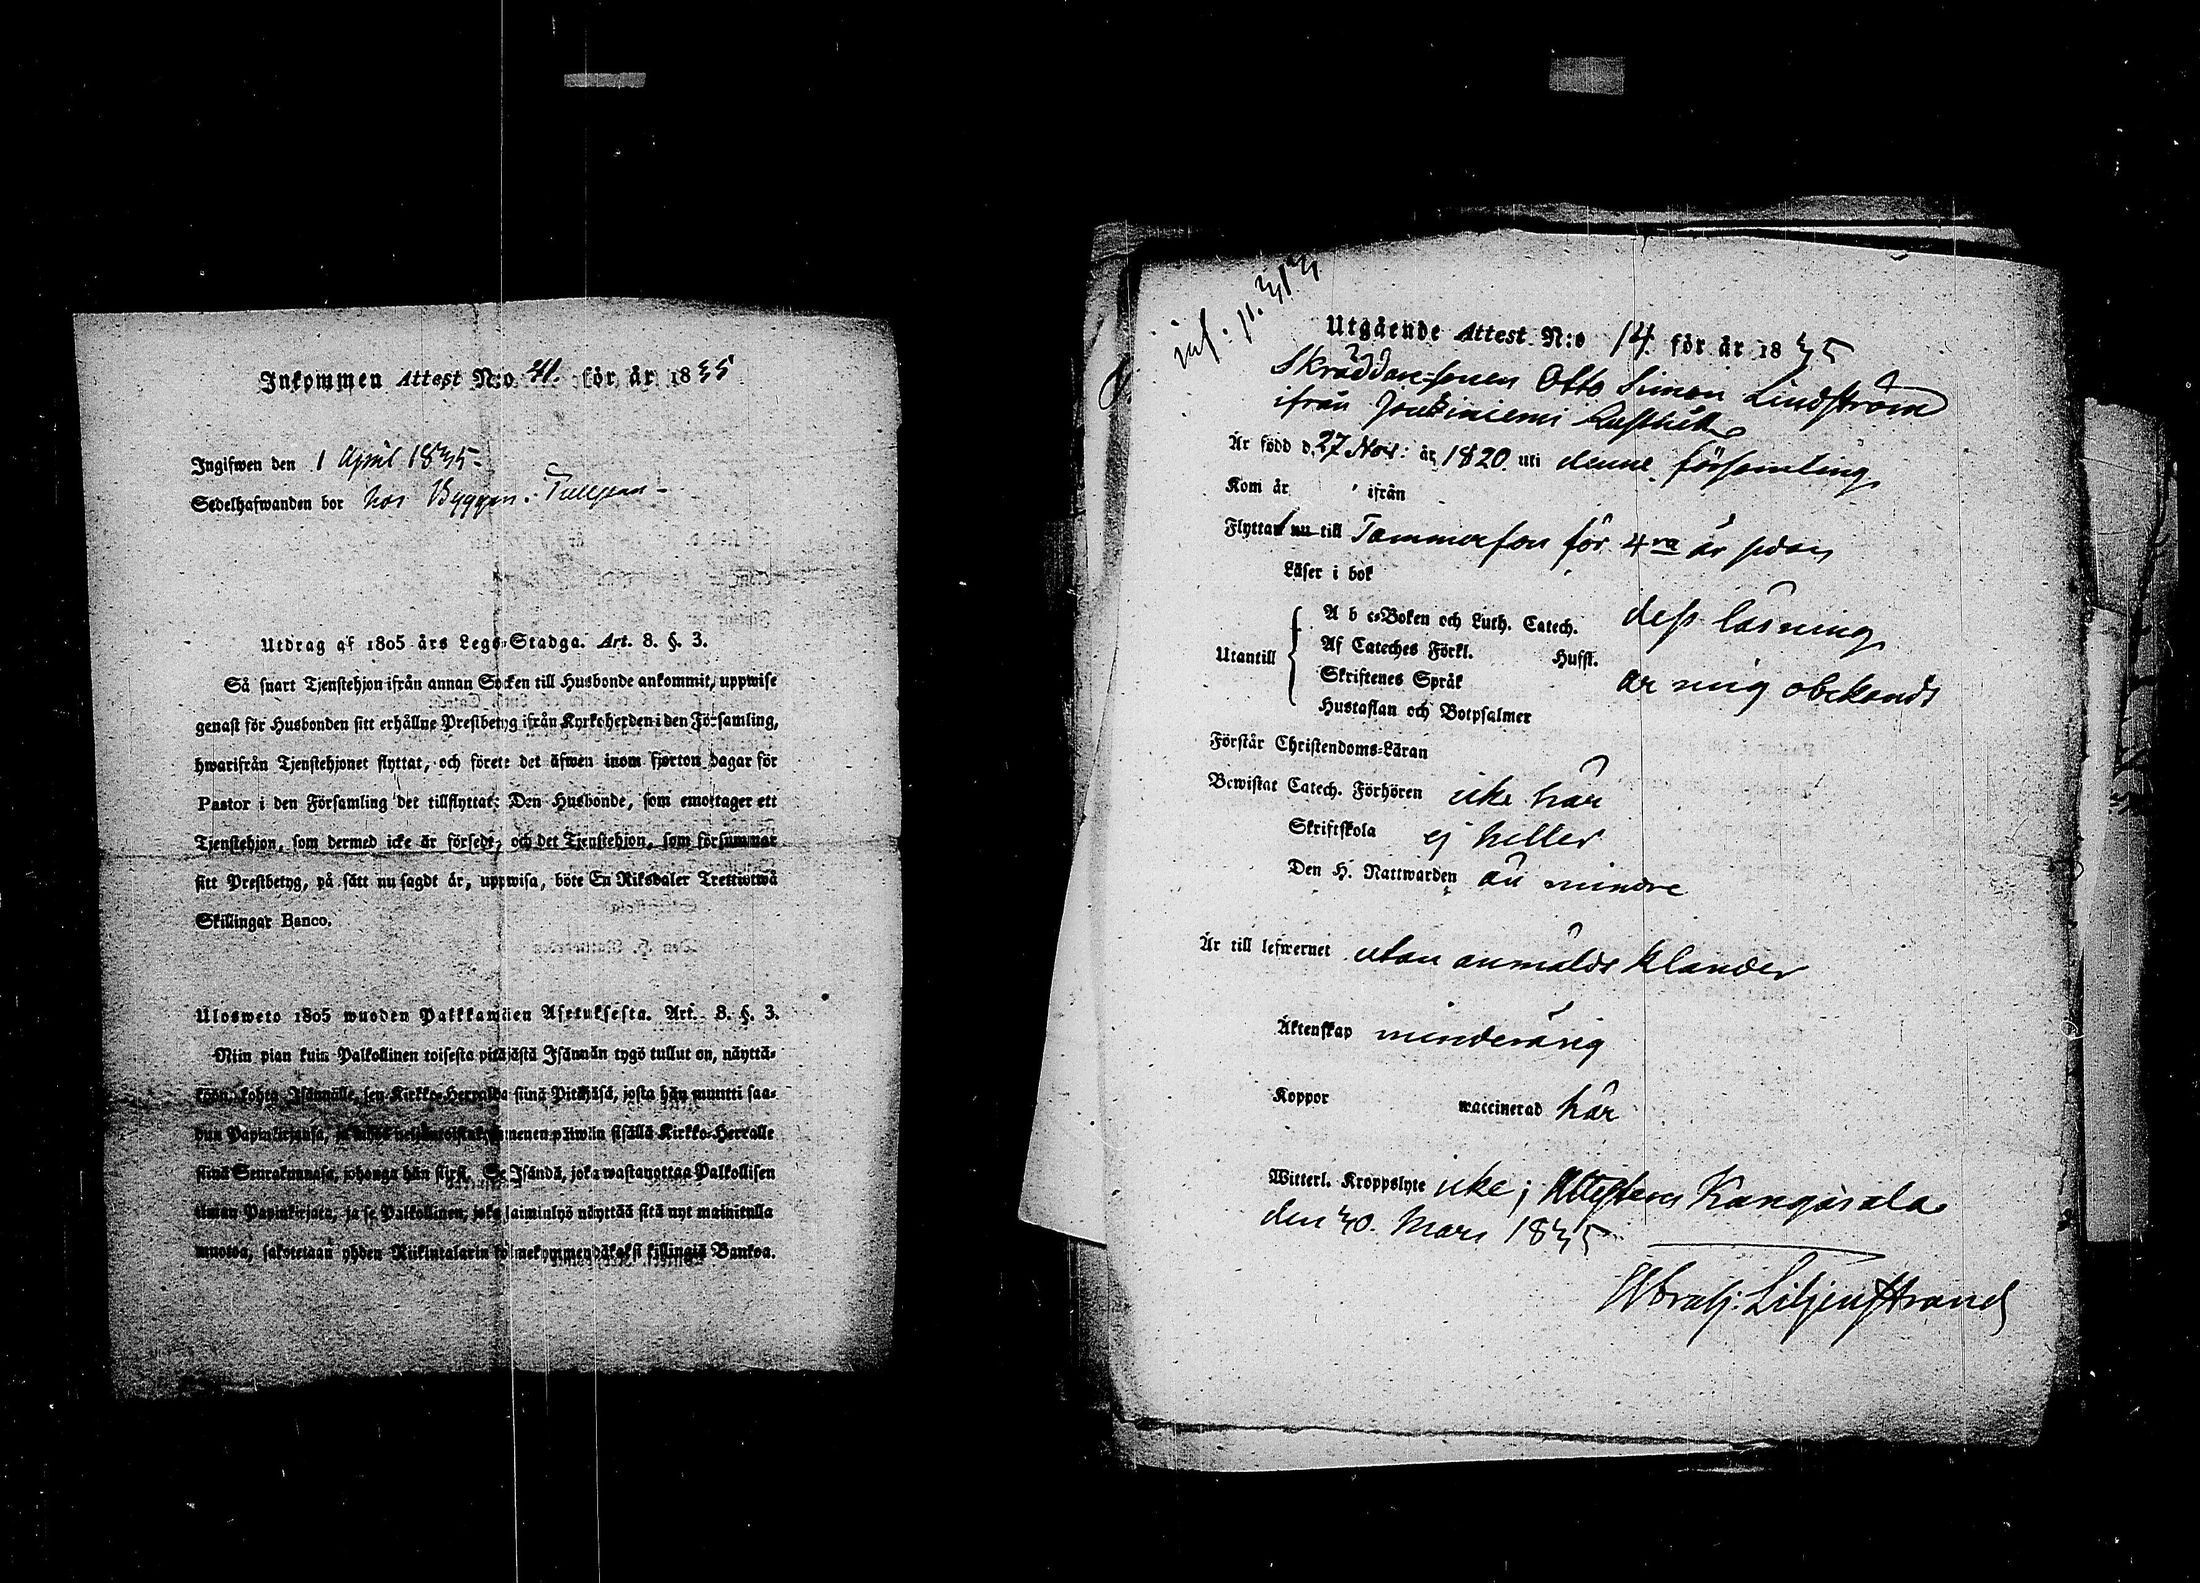 Inkommen Attest N:o 31. för år 1835
Ingifwen den 1 April 1835.
Sedelhafwanden bor hos Byggm.
Utdrag af 1805 års Lego-Stadga. Art. 8. §. 3.
Så snart Tjenstehjon ifrån annan Socken till Husbonde ankommit, uppwise
genast för Husbonden sitt erhållne Prestbetyg ifrån Kyrkoherden i den Församling,
hwarifrån Tjenstehjonet flyttat, och förete det äfwen inom fjorton dagar för
Pastor i den Församling det tillflyttat: Den Husbonde, som emottager ett
Tjenstehjon, som dermed icke är försedt, och det Tjenstehjon, som försummar
sitt Prestbetyg, på sätt nu sagdt är, uppwisa, böte En Riksdaler Trettiotwå
Skillingar Banco.
Ulosweto 1805 wuoden Palkkawäen Asetuksesta. Art. 8. §. 3.
Niin pian kuin Palkollinen toisesta pitäjästä Isännän tygö tullut on, näyttä-
köön kohta Isännälle, sen Kirkko-Herralda siinä Pitäjäsä, josta hän muutti saa-
dun Papinkirjansa, kymmenen päiwän sisällä Kirkko-Herralle
siinä Seurakunnasa, johonga hän siirsi. Se Isändä, joka wastanottaa Palkollisen
ilman Papinkirjata, ja se Palkollinen, joka laiminlyö näyttää sitä nyt mainitulla
muotoa, sakotetaan yhden Riikintalarin kolmekymmendäkaksi killingiä Bankoa.
Utgående Attest N:o 14. för år 1835
Skräddare-sonen Otto Simon Lindström
ifrån Rusthåll
Är född d. 27 Nov: år 1820 uti denne församling
Kom år ifrån
Flyttat nu till Tammerfors för 4ra år sedan
Läser i bok
Utantill
A b c-Boken och Luth. Catech. dess läsning
Af Cateches Förkl. Husst.
Skriftenes Språk är mig obekandt
Hustaflan och Botpsalmer
Förstår Christendoms-Läran
Bewistat Catech. Förhören icke här
Skriftskola ej heller
Den H. Nattwarden än mindre
Är till lefwernet utan anmäldt klander
Äktenskap minderårig
Koppor waccinerad här
Witterl. Kroppslyte icke; Attesteras Kangasala
den 30. Mars 1835
Liljenstrand